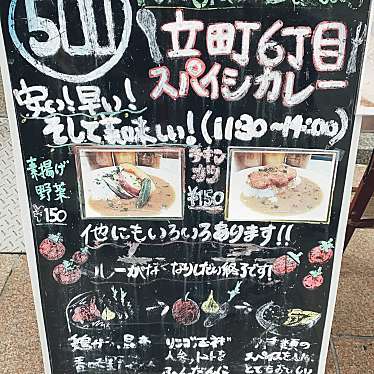 500
立町6丁目
スパイシカレー
安い!早い!
そして美味しい!(11:30〜14:00)
素揚げ
野菜
¥150
チキン
カツ
¥150
他にもいろいろあります!!
ルーがなくなりしだい終了です!
鶏ガラ、昆布
りんご、玉ネギ
人参、トマトを
スパイスを
とてもおいしい